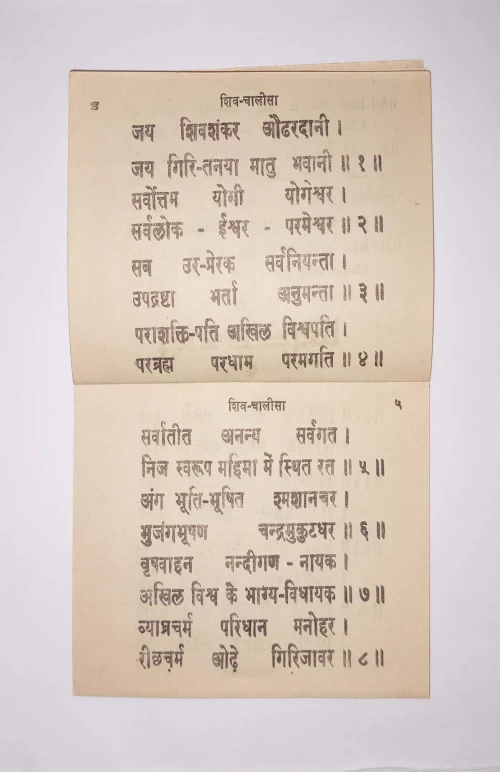 ४
शिव-चालीसा
जय शिवशंकर औढरदानी ।
जय गिरि-तनया मातु भवानी ॥ १ ॥
सर्वोत्तम योगी योगेश्वर ।
सर्वलोक - ईश्वर - परमेश्वर ॥ २ ॥
सब उर-प्रेरक सर्वनियन्ता ।
उपद्रष्टा भर्ता अनुमन्ता ॥ ३ ॥
पराशक्ति-पति अखिल विश्वपति ।
परब्रह्म परधाम परमगति ॥ ४ ॥
शिव-चालीसा ५
सर्वातीत अनन्य सर्वगत ।
निज स्वरूप महिमा में स्थित रत ॥ ५ ॥
अंग भूति-भूषित श्मशानचर ।
भुजंगभूषण चन्द्रमुकुटधर ॥ ६ ॥
वृषवाहन नन्दीगण - नायक ।
अखिल विश्व के भाग्य-विधायक ॥ ७ ॥
व्याघ्रचर्म परिधान मनोहर ।
रीछचर्म ओढ़े गिरिजावर ॥ ८ ॥